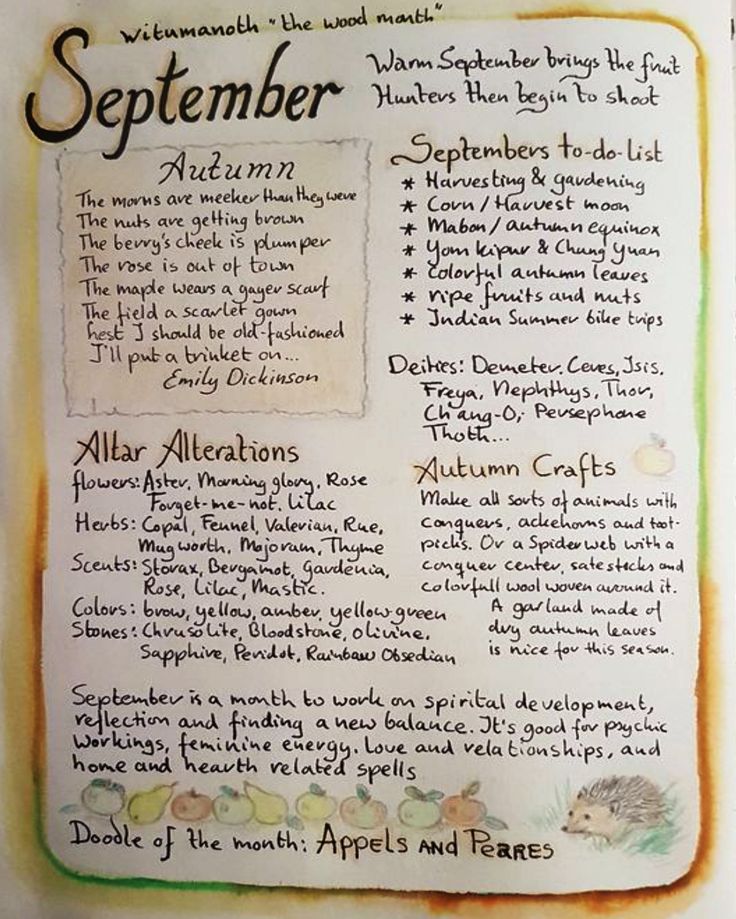 Witumanoth "the wood month"
September
Warm September brings the fruit
Hunters then begin to shoot
Autumn
The morns are meeker than they were
The nuts are getting brown
The berry's cheek is plumper
The rose is out of town
The maple wears a gayer scarf
The field a scarlet gown
hest I should be old-fashioned
I'll put a trinket on...
Emily Dickinson
Septembers to-do-list
* Harvesting & gardening
* Corn / Harvest moon
* Mabon / autumn equinox
* Yom kipur & Chung Yuan
* Colorful autumn leaves
* ripe fruits and nuts
* Indian Summer bike trips
Deities: Demeter, Ceres, Isis,
Freya, Nephthys, Thor,
Chang-O, Persephone
Thoth...
Altar Alterations
flowers: Aster, Morning glory, Rose
Forget-me-not, Lilac
Herbs: Copal, Fennel, Valerian, Rue,
Mugworth, Majoram, Thyme
Scents: Storax, Bergamot, Gardenia,
Rose, Lilac, Mastic.
Colors: brow, yellow, amber, yellow-green
Stones: Chrusolite, Bloodstone, olivine,
Sapphire, Peridot, Rainbow Obsedian
Autumn Crafts
Make all sorts of animals with
conquers, ackehorns and toot-
picks. Or a Spiderweb with a
conquer center, satesticks and
colorfull wool woven around it.
A garland made of
dry autumn leaves
is nice for this season.
September is a month to work on spirital development,
reflection and finding a new balance. It's good for psychic
workings, feminine energy. Love and relationships, and
home and hearth related spells
Doodle of the month: Appels and Perres